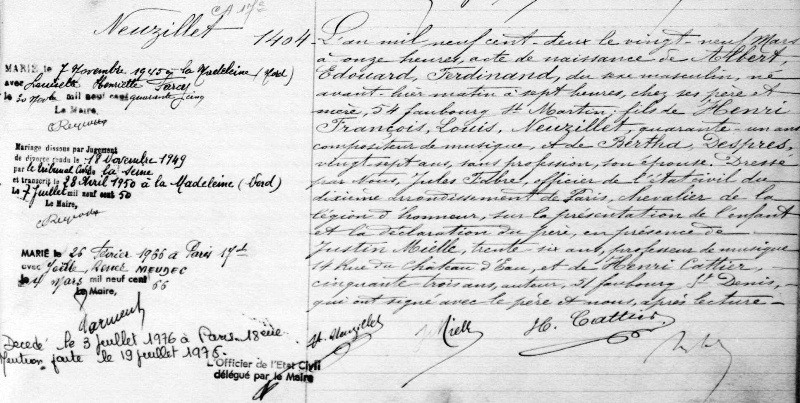 Neuzillet
CA 17e
MARIÉ le 7 Novembre 1945 à la Madeleine (Nord)
avec Henriette
le 30 mil neuf cent quarante cinq
Le Maire,
Mariage dissous par Jugement
de divorce rendu le 18 Novembre 1949
par le tribunal Civil de la Seine
et transcrit le 28 Avril 1950 à la Madeleine (Nord)
le 7 Juillet mil neuf cent 50
Le Maire,
MARIÉ le 26 Février 1966 à Paris 17e
avec MEUDEC
le Mars mil neuf cent 66
Le Maire,
Décédé le 3 juillet 1976 à Paris 18ème
Mention faite le 19 juillet 1976.
L'Officier de l'Etat Civil
délégué par le Maire
1404
L'an mil neuf cent deux le vingt-neuf Mars
à onze heures, acte de naissance de Albert,
Edouard, Ferdinand, du sexe masculin, né
avant-hier matin à sept heures, chez ses père et
mère, 54 faubourg St Martin; fils de Henri
François, Louis, Neuzillet, quarante-un ans
compositeur de musique, et de Bertha, Despres,
vingt sept ans, sans profession, son épouse. Dressé
par Nous, Jules Fabre, officier de l'état civil du
dixième arrondissement de Paris, chevalier de la
légion d'honneur, sur la présentation de l'enfant
et la déclaration du père, en présence de
Justin Mielle, trente six ans, professeur de musique
14 Rue du Château d'Eau, et de Henri Cattier,
cinquante trois ans, auteur, 31 faubourg St Denis,
qui ont signé avec le père et nous, après lecture-
H. Neuzillet Mielle H. Cattier